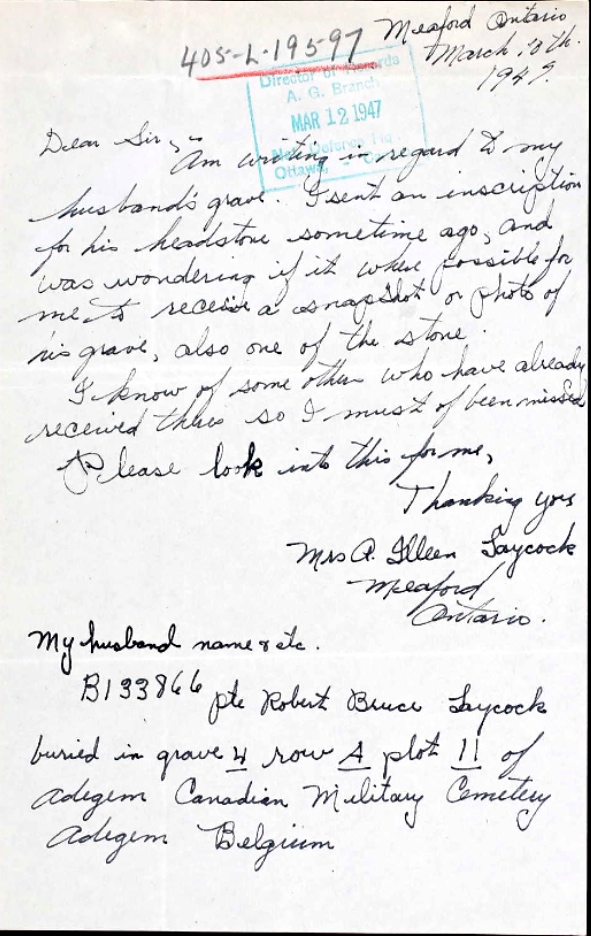 405-L-19597
Meaford Ontario
March 10th.
1947.
Director of Records
A. G. Branch
MAR 12 1947
Nat. Defence
Ottawa,
Dear Sir,
Am writing in regard to my
husband's grave. I sent an inscription
for his headstone sometime ago, and
was wondering if it where possible for
me to receive a snapshot or photo of
his grave, also one of the stone.
I know of some other who have already
received theirs so I must of been missed
Please look into this for me,
Thanking you
Mrs R. Illeen Laycock
Meaford
Ontario.
My husband name & etc.
B133866 pte Robert Bruce Laycock
buried in grave 4 row A plot 11 of
Adegem Canadian Military Cemetery
Adegem Belgium